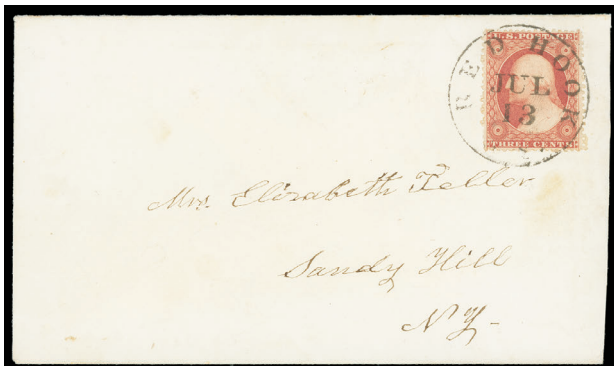 U.S. POSTAGE
RED HOOK
JUL
13
THREE CENTS
Mrs. Elizabeth Feller
Sandy Hill
NY-